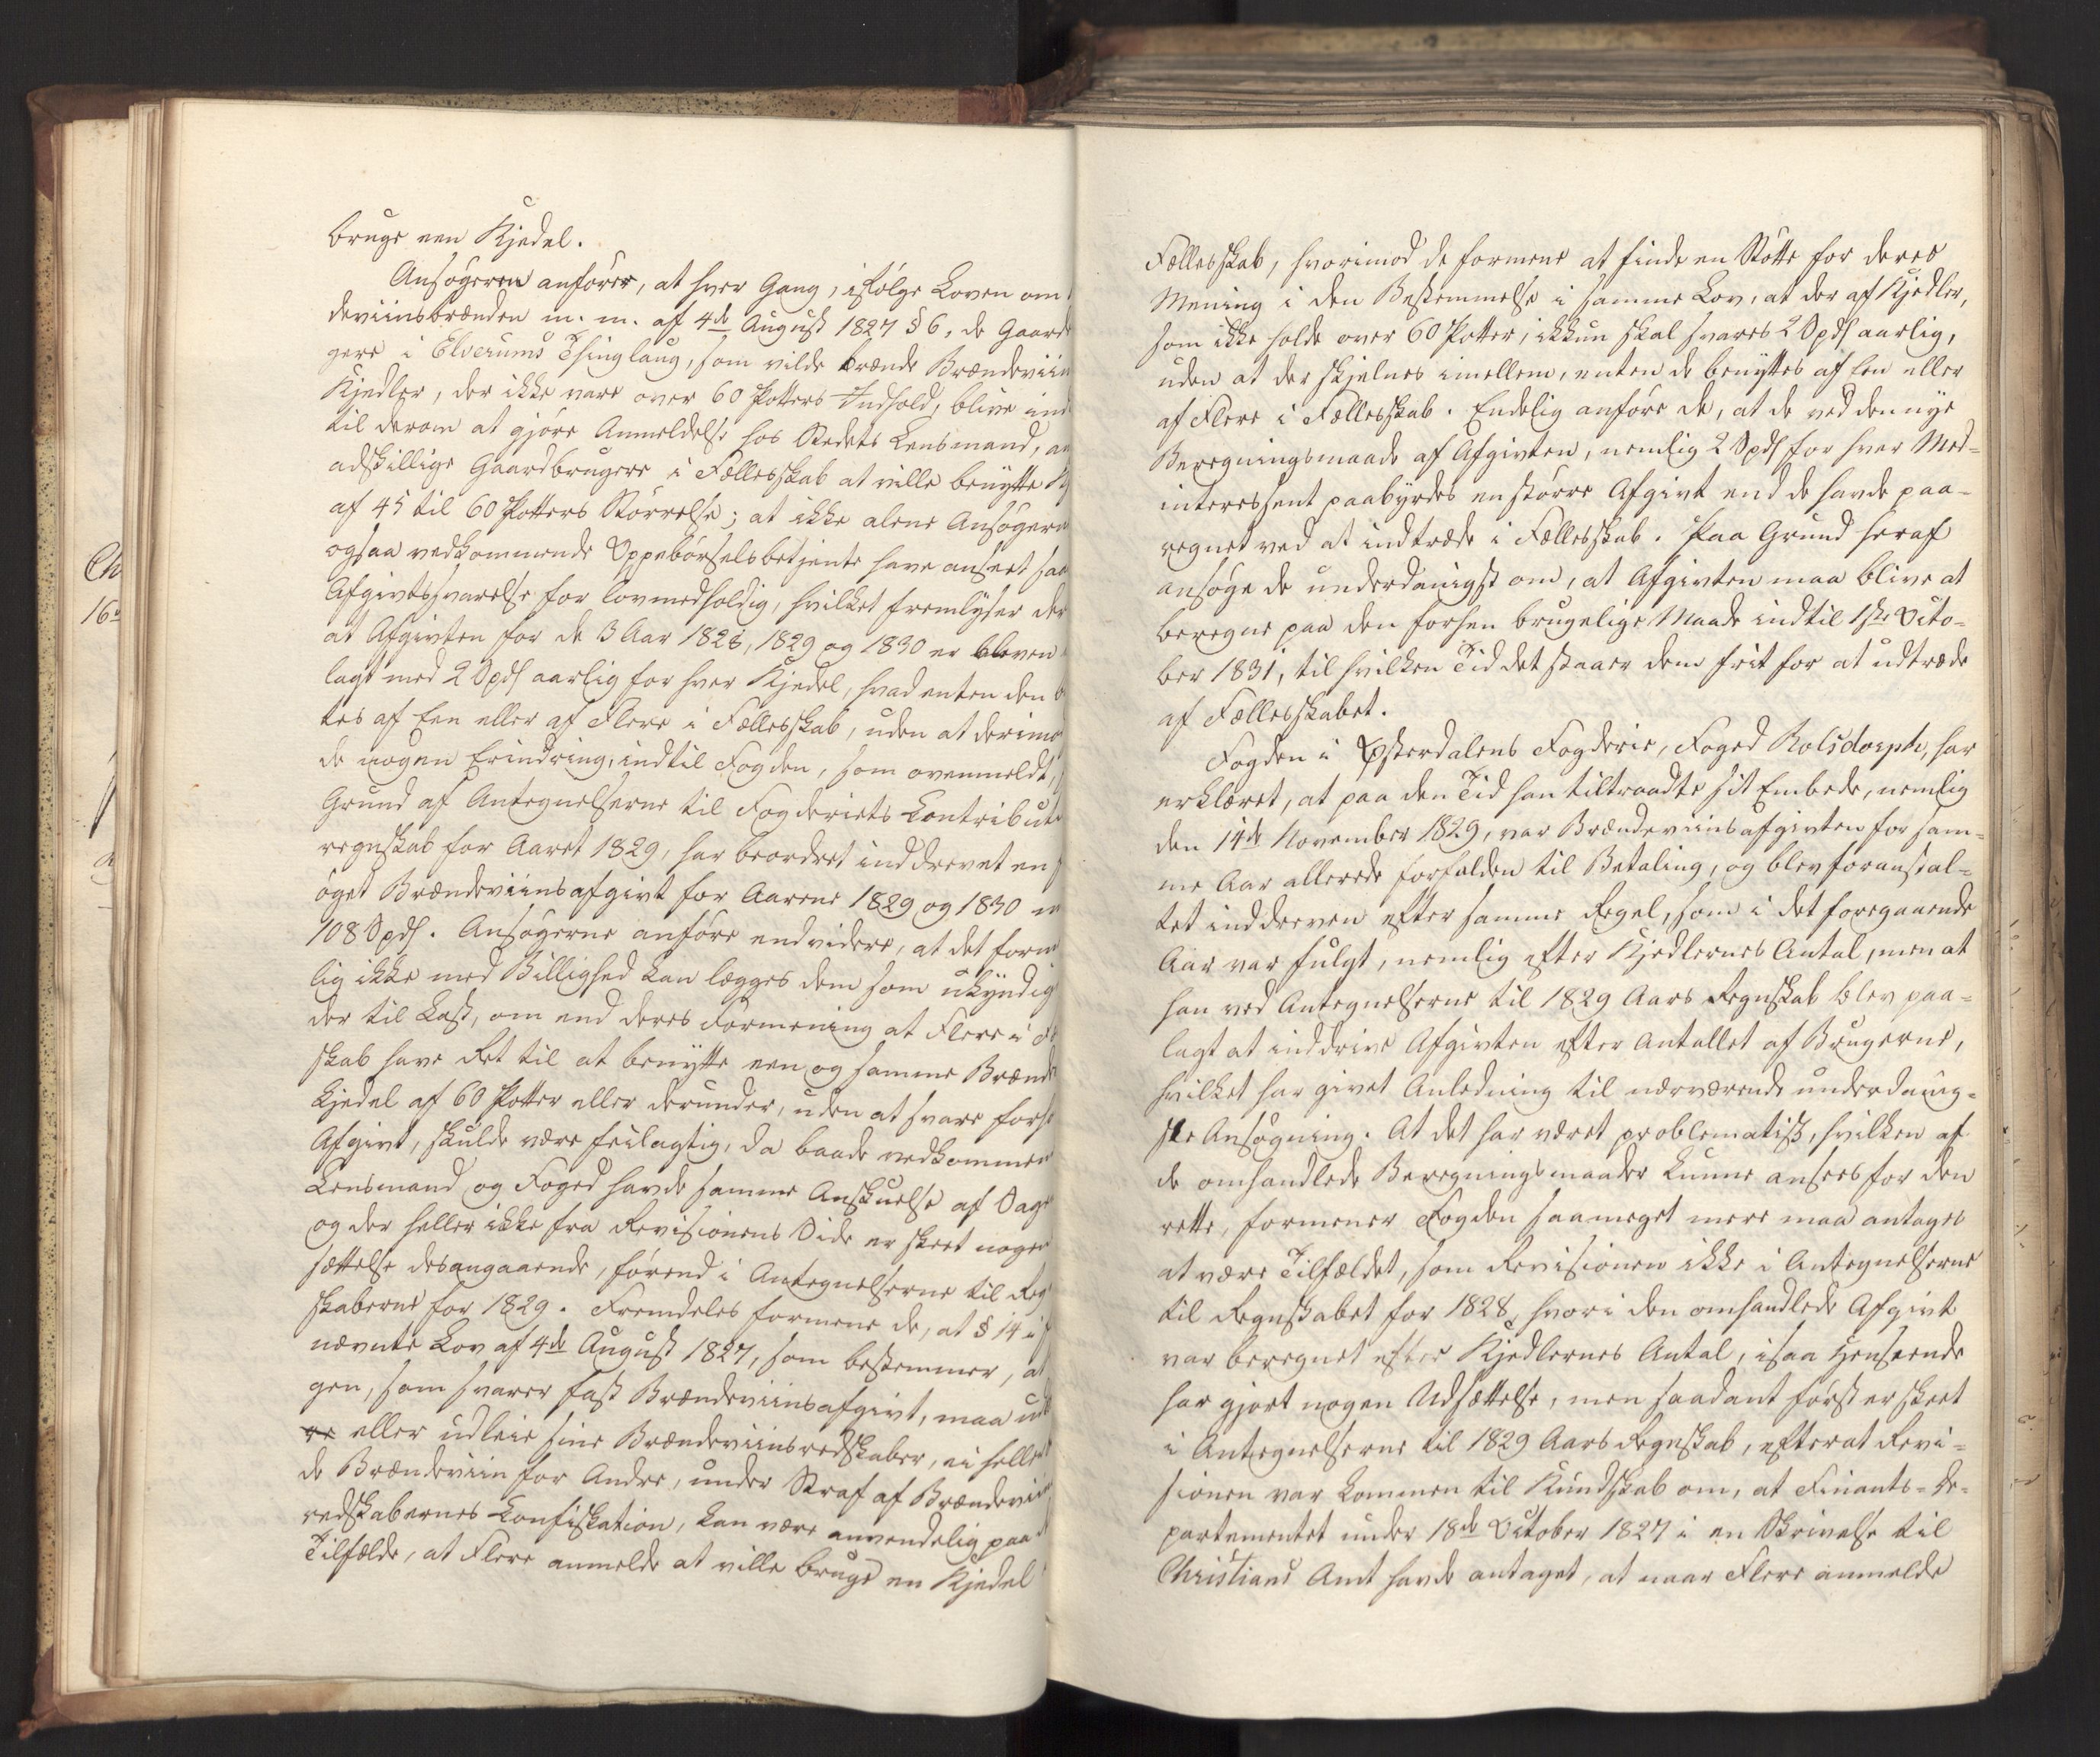 bruge een Kjedel.
Ansøgerne anfører, at hver Gang, ifølge Loven om
deviinsbrænden m. m. af 4de August 1827 § 6, de Gaard
gere i Elverums Thinglaug, som vilde brænde Brændeviin
Kjedler, der ikke vare over 60 Potters Indhold, blive ind
til derom at gjøre Anmeldelse hos Stedets Lensmand, an
adskillige Gaardbrugere i Fællesskab at ville benytte Kj
af 45 til 60 Potters Størrelse; at ikke alene Ansøgerne
ogsaa vedkommende Oppebørselsbetjente have anseet saa
Afgivtssvarelse for lovmedholdig, hvilket fremlyser der
at Afgivten for de 3 Aar 1828, 1829 og 1830 er bleven
lagt med 2 Spd aarlig for hver Kjedel, hvad enten den b
tes af Een eller af Flere i Fællesskab, uden at derimod
de nogen Erindring, indtil Fogden, som ovenmeldt,
Grund af Antegnelserne til Fogderiets Contribut
regnskab for Aaret 1829, har beordret inddrevet en
øget Brændeviinsafgivt for Aarene 1829 og 1830 m
108 Spd. Ansøgerne anføre endvidere, at det form
lig ikke med Billighed kan lægges dem som ukyndig
der til Last, om end deres Formening at Flere i Fæ
skab have Ret til at benytte een og samme Brænde
kjedel af 60 Potter eller derunder, uden at svare forh
Afgivt, skulde være feilagtig, da baade vedkommen
Lensmand og Foged havde samme Anskuelse af Sage
og der heller ikke fra Revisionens Side er skeet nogen
sættelse desangaaende, førend i Antegnelserne til Reg
skaberne for 1829. Fremdeles formene de, at § 14 i
nævnte Lov af 4de August 1827, som bestemmer, at
gen, som svarer fast Brændeviinsafgivt, maa ud
re eller udleie sine Brændeviinsredskaber, ei heller
de Brændeviin for Andre, under Straf af Brændeviin
redskabernes Confiskation, kan være anvendelig paa
Tilfælde, at Flere anmelde at ville bruge en Kjedel
Fællesskab, hvorimod de formene at finde en Støtte for deres
Mening i den Bestemmelse i samme Lov, at der af Kjedler,
som ikke holde over 60 Potter, ikkun skal svares 2 Spd aarlig,
uden at der skjelnes imellem, enten de benyttes af Een eller
af Flere i Fællesskab. Endelig anføre de, at de ved den nye
Beregningsmaade af Afgivten, nemlig 2 Spd for hver Med-
interessent paabyrdes en større Afgivt end de havde paa-
regnet ved at indtræde i Fællesskab. Paa Grund heraf
ansøge de underdanigst om, at Afgivten maa blive at
beregne paa den forhen brugelige Maade indtil 1ste Octo-
ber 1831, til hvilken Tid det staaer dem frit for at udtræde
af Fællesskabet.
Fogden i Østerdalens Fogderie, Foged Rolsdorph, har
erklæret, at paa den Tid han tiltraadte sit Embede, nemlig
den 14de November 1829, var Brændeviinsafgivten for sam-
me Aar allerede forfalden til Betaling, og blev foranstal-
tet inddreven efter samme Regel, som i det foregaaende
Aar var fulgt, nemlig efter Kjedlernes Antal, men at
han ved Antegnelserne til 1829 Aars Regnskab blev paa-
lagt at inddrive Afgivten efter Antallet af Brugerne,
hvilket har givet Anledning til nærværende underdanig-
ste Ansøgning. At det har været problematisk, hvilken af
de omhandlede Beregningsmaader kunne ansees for den
rette, formener Fogden saameget mere maa antages
at være Tilfældet, som Revisionen ikke i Antegnelserne
til Regnskabet for 1828, hvori den omhandlede Afgivt
var beregnet efter Kjedlernes Antal, i saa Henseende
har gjort nogen Udsættelse, men saadant først er skeet
i Antegnelserne til 1829 Aars Regnskab, efterat Revi-
sionen var kommen til Kundskab om, at Finants-De-
partementet under 18de October 1827 i en Skrivelse til
Christians Amt havde antaget, at naar Flere anmelde